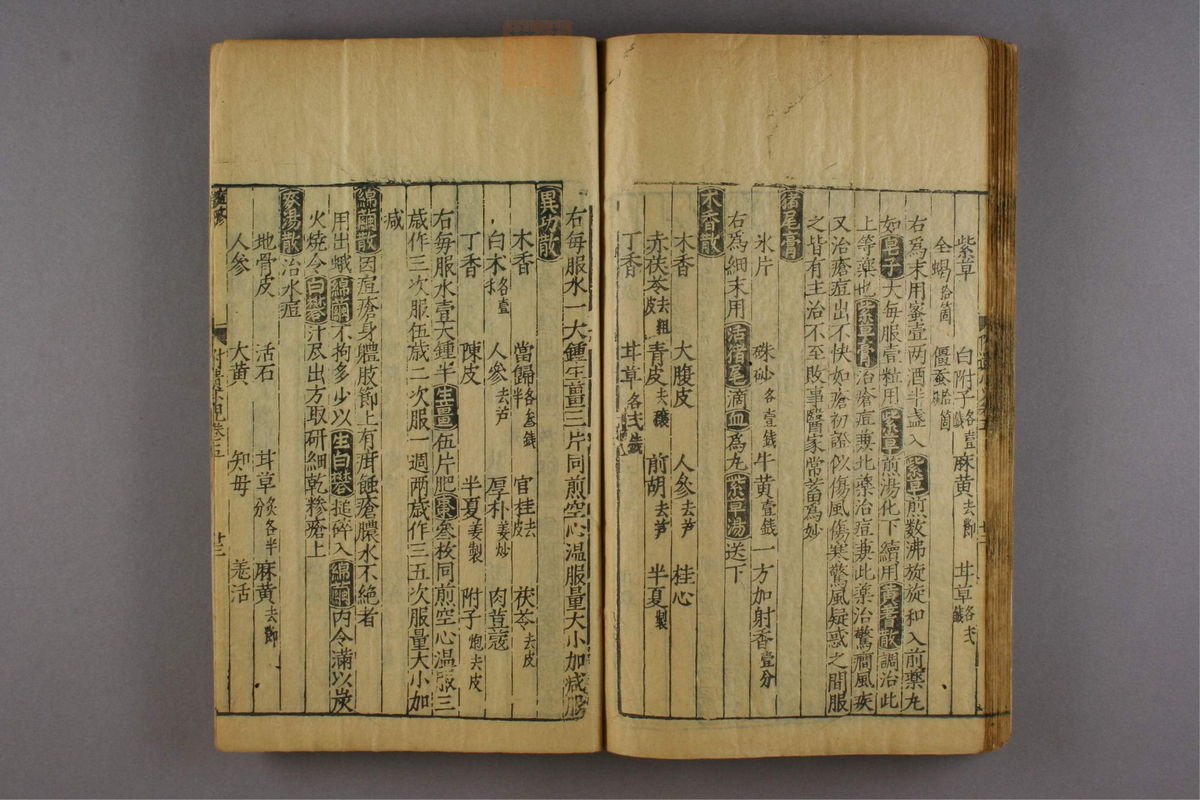 紫草 白附子各壹錢 麻黃去節 甘草各弍錢
全蝎拾箇 僵蚕拾箇
右爲末用蜜壹两酒半盏入紫草煎数沸旋旋和入前藥丸
如皂子大每服壹粒用紫草煎湯化下續用黃耆散調治此
上等藥也紫草膏治瘡痘兼此藥治痘兼此藥治驚癎風疾
又治瘡痘出不快如瘡初諗似傷風傷寒驚風疑惑之間服
之皆有主治不至敗事醫家常蓄爲妙
猪尾膏
氷片 硃砂各壹錢 牛黃壹錢 一方加射香壹分
右爲細末用活猪尾滴血爲丸紫草湯送下
木香散
木香 大腹皮 人參去芦 桂心
赤茯苓去粗皮 青皮去穰 前胡去芦 半夏製
丁香 甘草各弍錢
右每服水一大鍾生薑三片同煎空心温服量大小加减服
異功散
木香 當歸各叁錢半 官桂去皮 茯苓去皮
白朮各壹 人參去芦 厚朴姜炒 肉荳蔻
丁香 陳皮 半夏姜製 附子炮去皮
右每服水壹大鍾半生薑伍片肥棗叁枚同煎空心温服三
歲作三次服伍歲二次服一週两歲作三五次服量大小加
减
綿繭散因痘瘡身體肢節上有疳蝕瘡膿水不絶者
用出蛾綿繭不拘多少以生白礬搥碎入綿繭内令滿以炭
火燒令白礬汁尽出方取研細乾糝瘡上
麥湯散治水痘
地骨皮 活石 甘草炙各半分 麻黃去節
人參 大黃 知母 羌活